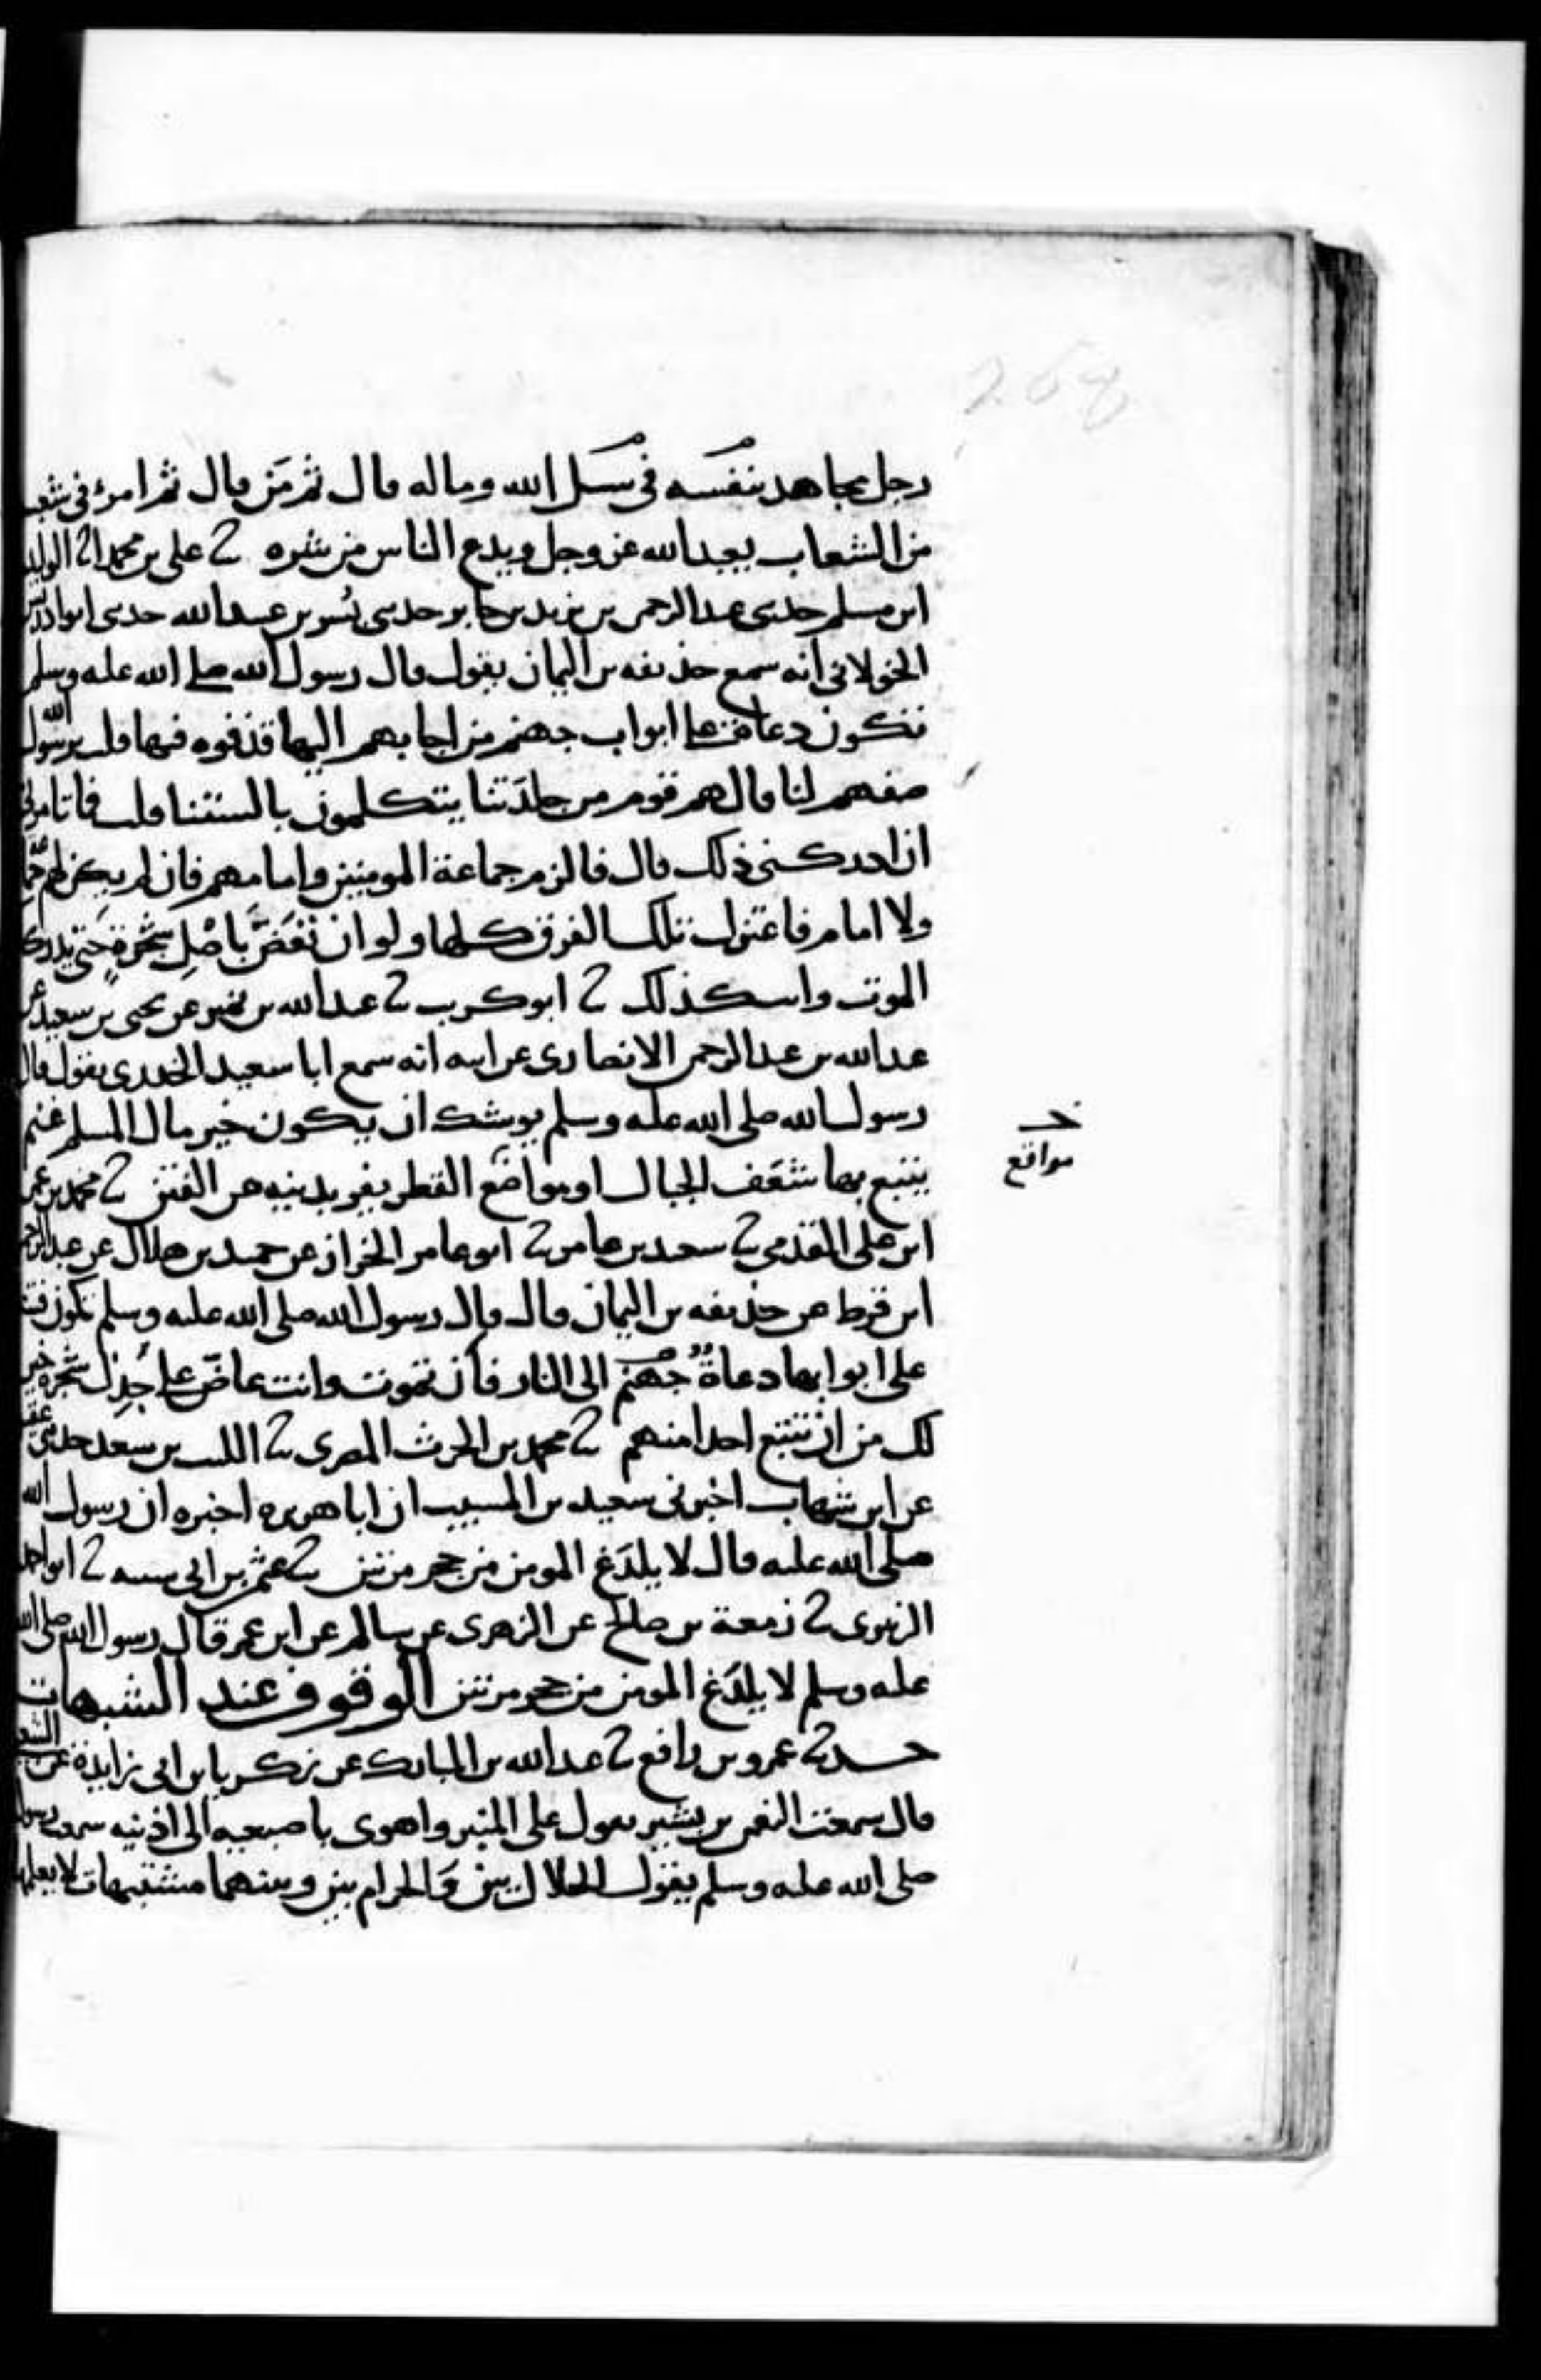 268
رجل مجاهد بنفسه في سبيل الله وماله قال ثم من قال ثم امرؤ في شعب
من الشعاب يعبد الله عز وجل ويدع الناس من شره ثنا علي بن محمد ثنا الوليد
ابن مسلم حدثني عبد الرحمن بن يزيد بن جابر حدثني بسر بن عبيد الله حدثني ابو ادريس
الخولاني انه سمع حذيفه بن اليمان يقول قال رسول الله صلى الله عليه وسلم
تكون دعاة على ابواب جهنم من اجابهم اليها قذفوه فيها قلت يرسول الله
صفهم لنا قال هم قوم من جلدتنا يتكلمون بالسنتنا قلت فما تامرني
ان ادركني ذلك قال فالزم جماعة المومنين وامامهم فان لم يكن لهم جماعة
ولا امام فاعتزل تلك الفرق كلها ولو ان تعض باصل شجرة حتى يدركك
الموت وانت كذلك ثنا ابو كريب ثنا عبد الله بن نمير عن يحيى بن سعيد عن
عبد الله بن عبد الرحمن الانصاري عن ابيه انه سمع ابا سعيد الخدري يقول قال
رسول الله صلى الله عليه وسلم يوشك ان يكون خير مال المسلم غنم
مواقع
يتبع بها شعف الجبال او مواضع القطر يفر بدينه من الفتن ثنا محمد بن عمر
ابن علي المقدمي ثنا سعيد بن عامر ثنا ابو عامر الخزاز عن حميد بن هلال عن عبد الرحمن
ابن قرط عن حذيفه بن اليمان قال قال رسول الله صلى الله عليه وسلم تكون فتن
على ابوابها دعاة جهنم الى النار فان تموت وانت عاض على جذل شجرة خير
لك من ان تتبع احدا منهم ثنا محمد بن الحرث المصري ثنا الليث بن سعد حدثني عقيل
عن ابن شهاب اخبرني سعيد بن المسيب ان ابا هريره اخبره ان رسول الله
صلى الله عليه قال لا يلدغ المومن من جحر مرتين ثنا عثمن بن ابي شيبه ثنا ابو احمد
الزبيري ثنا زمعة بن صالح عن الزهري عن سالم عن ابن عمر قال رسول الله صلى الله
عليه وسلم لا يلدغ المومن من جحر مرتين الوقوف عند الشبهات
حدثنا عمرو بن رافع ثنا عبد الله بن المبارك عن زكريا بن ابي زايدة عن الشعبي
قال سمعت النعمن بن بشير يقول على المنبر واهوى باصبعيه الى اذنيه سمعت رسول
صلى الله عليه وسلم يقول الحلال بين والحرام بين وبينهما مشتبهات لا يعلمها